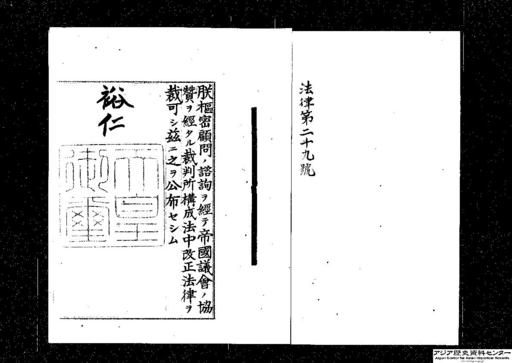 法律第二十九號
朕樞密顧問ノ諮詢ヲ經テ帝國議會ノ協
贊ヲ經タル裁判所構成法中改正法律ヲ
裁可シ茲ニ之ヲ公布セシム
裕仁
天皇
御璽
アジア歴史資料センター
Japan Center for Asian Historical Records